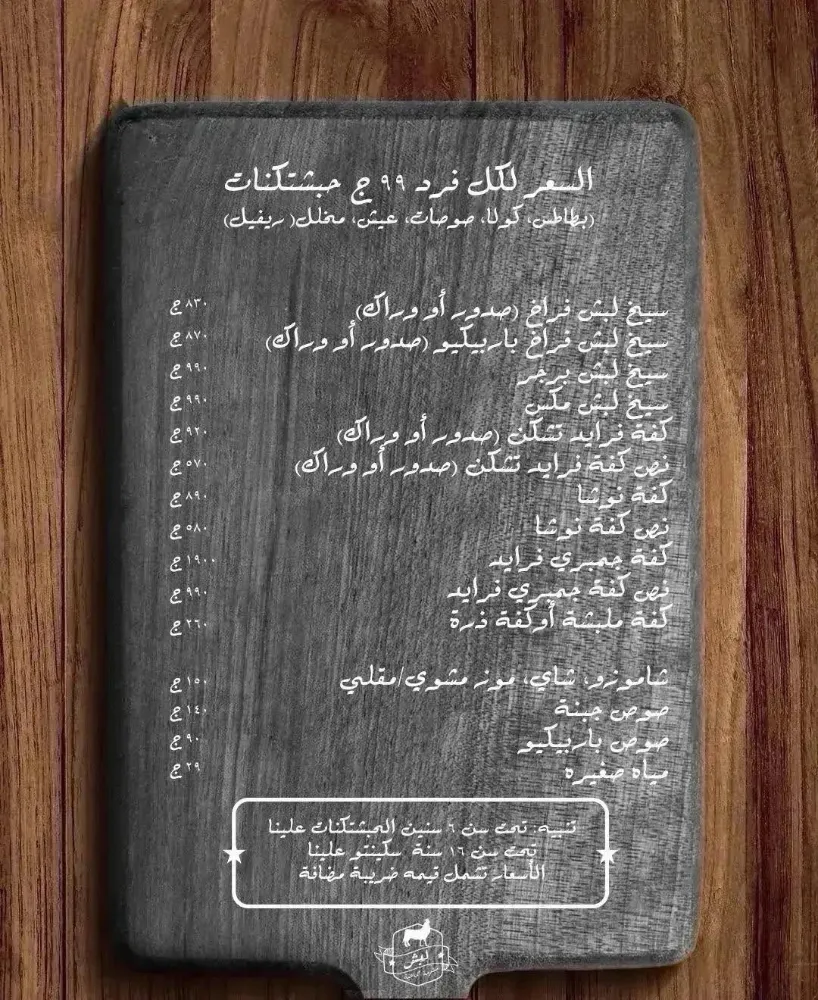 السعر لكل فرد ٩٩ ج حبشتكنات
(بطاطس، كولا، صوصات، عيش، مخلل( ريفيل)
سيخ لبش فراخ (صدور أو وراك) ٨٣٠ ج
سيخ لبش فراخ باربيكيو (صدور أو وراك) ٨٧٠ ج
سيخ لبش برجر ٩٩٠ ج
سيخ لبش مكس ٩٩٠ ج
كفة فرايد تشكن (صدور أو وراك) ٩٢٠ ج
نص كفة فرايد تشكن (صدور أو وراك) ٥٧٠ ج
كفة نوشا ٨٩٠ ج
نص كفة نوشا ٥٨٠ ج
كفة جمبري فرايد ١٩٠٠ ج
نص كفة جمبري فرايد ٩٩٠ ج
كفة ملبشة أوكفة ذرة ٢٦٠ ج
شاموزو، شاي، موز مشوي/مقلي ١٥٠ ج
صوص جبنة ١٤٠ ج
صوص باربيكيو ٩٠ ج
مياه صغيره ٢٩ ج
تنبيه: تحت سن ٦ سنين الحبشتكنات علينا
تحت سن ١٦ سنة سكينتو علينا
الأسعار تشمل قيمه ضريبة مضافة
لبش